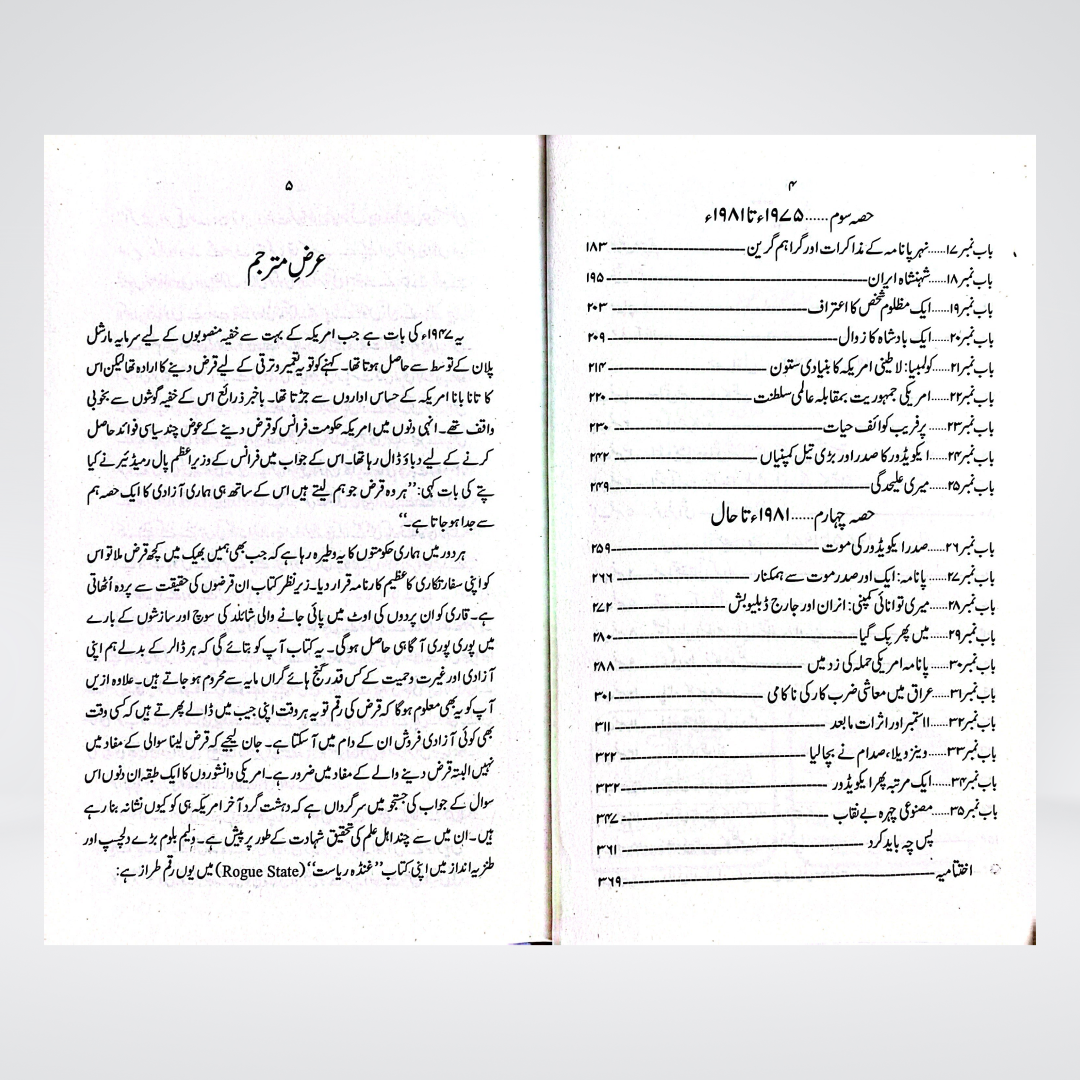 ۴
حصہ سوم......۱۹۷۵ء تا ۱۹۸۱ء
باب نمبر۱۷......نہر پانامہ کے مذاکرات اور گراہم گرین ۱۸۳
باب نمبر۱۸......شہنشاہ ایران ۱۹۵
باب نمبر۱۹......ایک مظلوم شخص کا اعتراف ۲۰۳
باب نمبر۲۰......ایک بادشاہ کا زوال ۲۰۹
باب نمبر۲۱......کولمبیا: لاطینی امریکہ کا بنیادی ستون ۲۱۴
باب نمبر۲۲......امریکی جمہوریت بمقابلہ عالمی سلطنت ۲۲۰
باب نمبر۲۳......پرفریب کوائف حیات ۲۳۰
باب نمبر۲۴......ایکویڈور کا صدر اور بڑی تیل کمپنیاں ۲۴۲
باب نمبر۲۵......میری علیحدگی ۲۴۹
حصہ چہارم......۱۹۸۱ء تا حال
باب نمبر۲۶......صدر ایکویڈور کی موت ۲۵۹
باب نمبر۲۷......پانامہ: ایک اور صدر موت سے ہمکنار ۲۶۶
باب نمبر۲۸......میری توانائی کمپنی: انران اور جارج ڈبلیو بش ۲۷۲
باب نمبر۲۹......میں پھر بک گیا ۲۸۰
باب نمبر۳۰......پانامہ امریکی حملہ کی زد میں ۲۸۸
باب نمبر۳۱......عراق میں معاشی ضرب کار کی ناکامی ۳۰۱
باب نمبر۳۲......۱۱ ستمبر اور اثرات مابعد ۳۱۱
باب نمبر۳۳......وینزویلا، صدام نے بچا لیا ۳۲۲
باب نمبر۳۴......ایک مرتبہ پھر ایکویڈور ۳۳۲
باب نمبر۳۵......مصنوعی چہرہ بے نقاب ۳۴۷
پس چہ باید کرد ۳۶۱
اختتامیہ ۳۶۹
۵
عرضِ مترجم
یہ ۱۹۴۷ء کی بات ہے جب امریکہ کے بہت سے خفیہ منصوبوں کے لیے سرمایہ مارشل
پلان کے توسط سے حاصل ہوتا تھا۔ کہنے کو تو یہ تعمیر و ترقی کے لیے قرض دینے کا ارادہ تھا لیکن اس
کا تانا بانا امریکہ کے حساس اداروں سے جڑتا تھا۔ باخبر ذرائع اس کے خفیہ گوشوں سے بخوبی
واقف تھے۔ انہی دنوں میں امریکہ حکومت فرانس کو قرض دینے کے عوض چند سیاسی فوائد حاصل
کرنے کے لیے دباؤ ڈال رہا تھا۔ اس کے جواب میں فرانس کے وزیراعظم پال رمیڈئیر نے کیا
پتے کی بات کہی: ’’ہر وہ قرض جو ہم لیتے ہیں اس کے ساتھ ہی ہماری آزادی کا ایک حصہ ہم
سے جدا ہو جاتا ہے۔‘‘
ہر دور میں ہماری حکومتوں کا یہ وطیرہ رہا ہے کہ جب بھی ہمیں بھیک میں کچھ قرض ملا تو اس
کو اپنی سفارتکاری کا عظیم کارنامہ قرار دیا۔ زیرِنظر کتاب ان قرضوں کی حقیقت سے پردہ اُٹھاتی
ہے۔ قاری کو ان پردوں کی اوٹ میں پائی جانے والی شائلڈ کی سوچ اور سازشوں کے بارے
میں پوری پوری آگاہی حاصل ہو گی۔ یہ کتاب آپ کو بتائے گی کہ ہر ڈالر کے بدلے ہم اپنی
آزادی اور غیرت و حمیت کے کس قدر گنج ہائے گراں مایہ سے محروم ہو جاتے ہیں۔ علاوہ ازیں
آپ کو یہ بھی معلوم ہو گا کہ قرض کی رقم تو یہ ہر وقت اپنی جیب میں ڈالے پھرتے ہیں کہ کسی وقت
بھی کوئی آزادی فروش ان کے دام میں آ سکتا ہے۔ جان لیجیے کہ قرض لینا سوالی کے مفاد میں
نہیں البتہ قرض دینے والے کے مفاد میں ضرور ہے۔ امریکی دانشوروں کا ایک طبقہ ان دنوں اس
سوال کے جواب کی جستجو میں سرگرداں ہے کہ دہشت گرد آخر امریکہ ہی کو کیوں نشانہ بنا رہے
ہیں۔ ان میں سے چند اہل علم کی تحقیق شہادت کے طور پر پیش ہے۔ ولیم بلوم بڑے دلچسپ اور
طنزیہ انداز میں اپنی کتاب ’’غنڈہ ریاست‘‘ (Rogue State) میں یوں رقم طراز ہے: